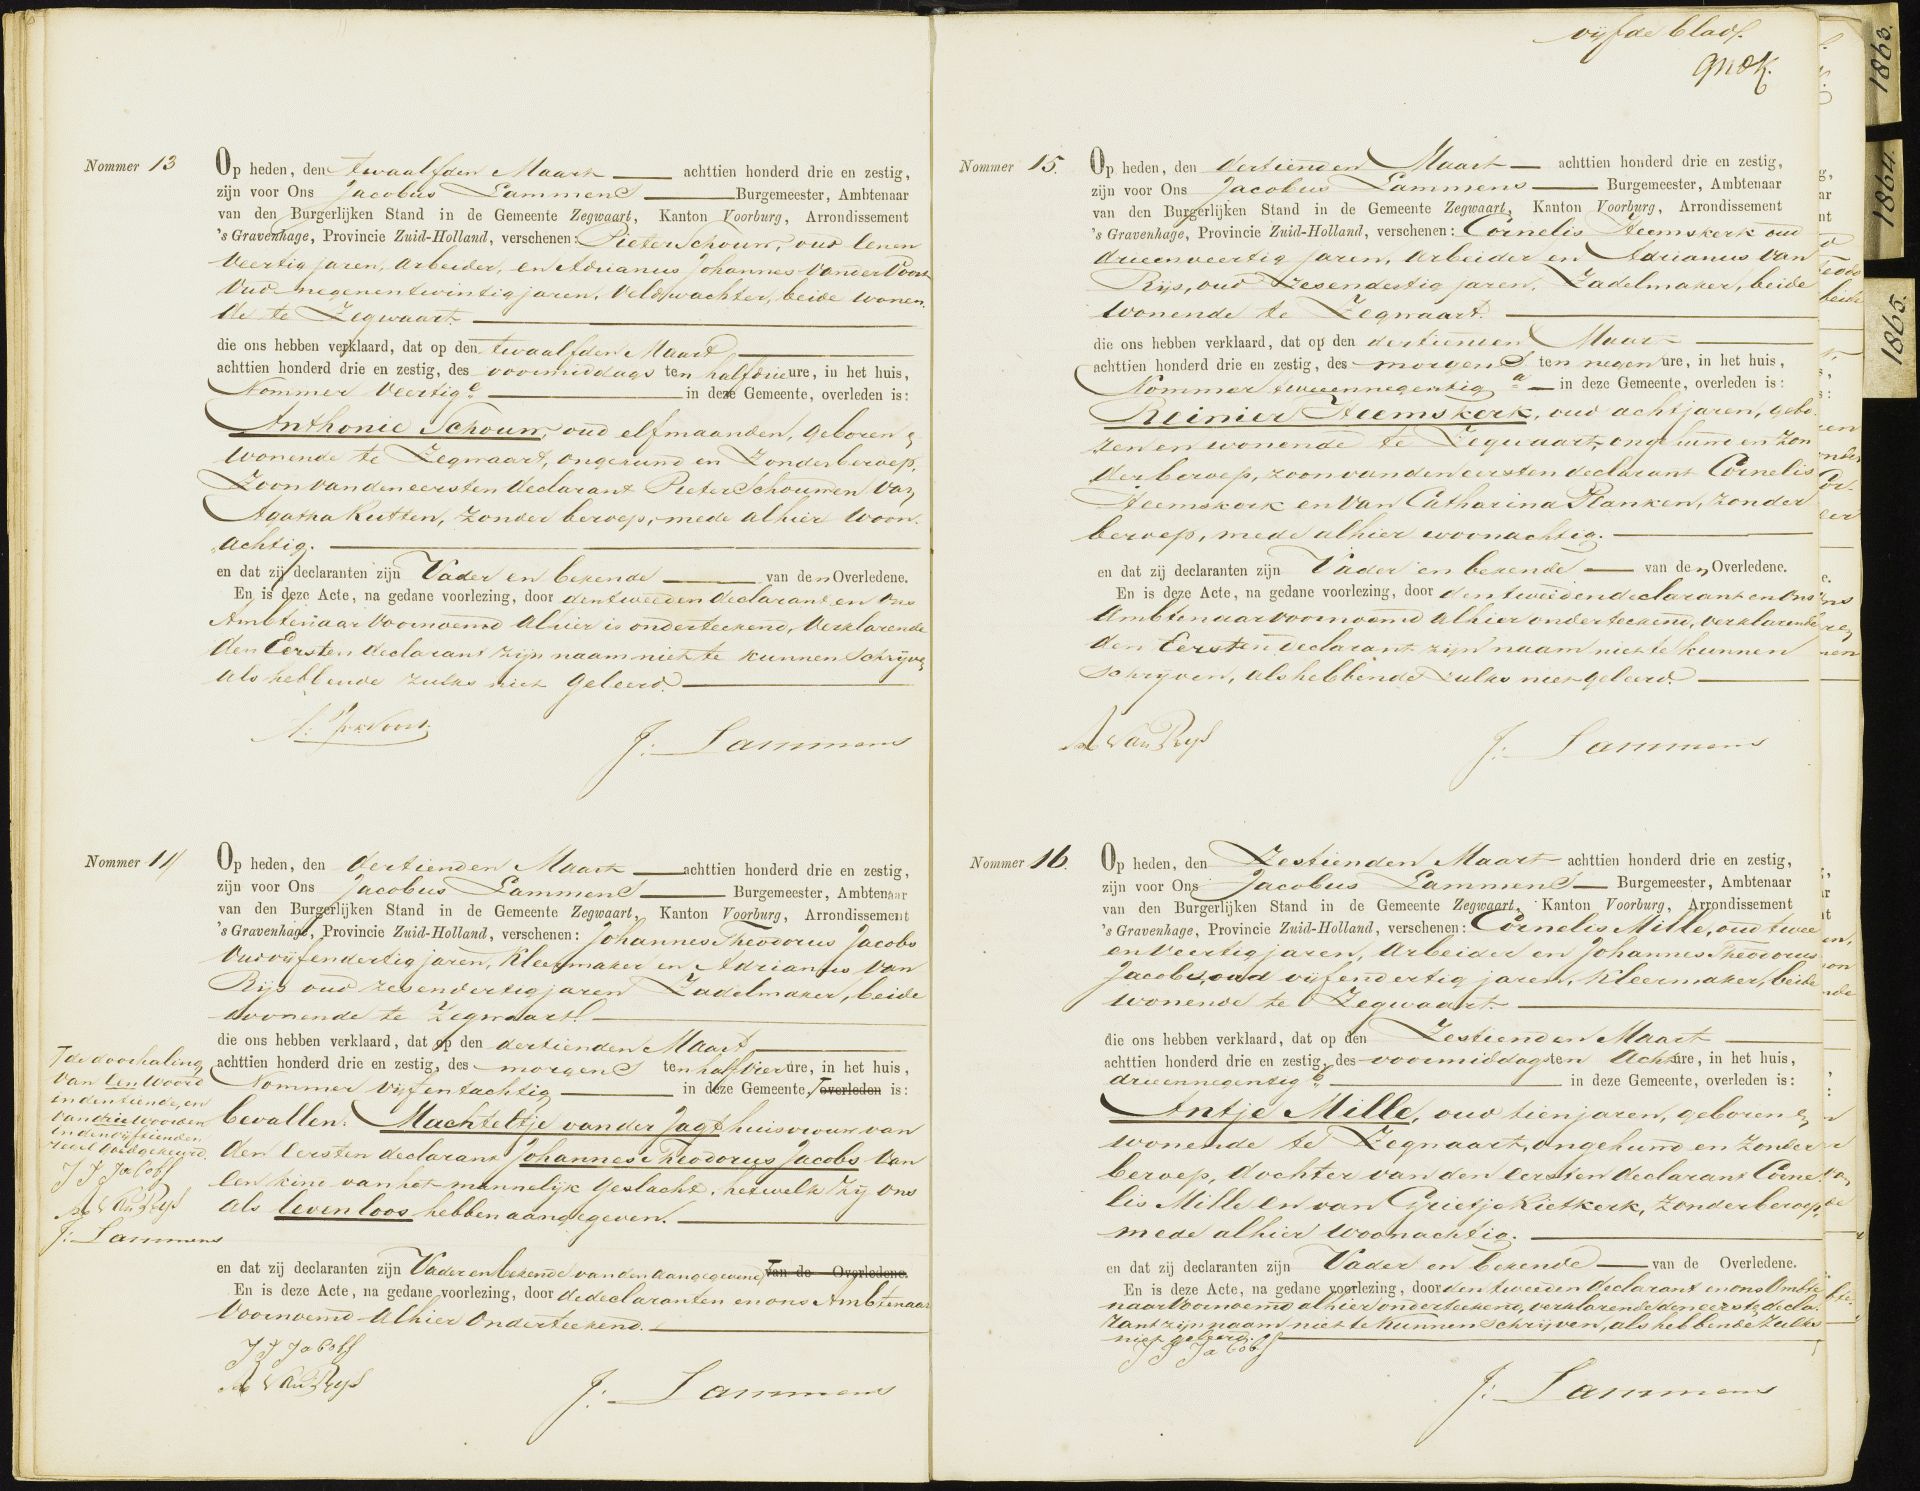 Nommer 13
Op heden, den twaalfden Maart achttien honderd drie en zestig,
zijn voor Ons Jacobus Lammens Burgemeester, Ambtenaar
van den Burgerlijken Stand in de Gemeente Zegwaart, Kanton Voorburg, Arrondissement
's Gravenhage, Provincie Zuid-Holland, verschenen: Pieter Schouw, oud eenen
veertig jaren, arbeider, en Adrianus Johannes vander Voort
oud negenentwintig jaren, veldwachter, beide wonen-
de te Zegwaart
die ons hebben verklaard, dat op den twaalfden Maart
achttien honderd drie en zestig, des voormiddags ten half drie ure, in het huis,
Nommer veertig c in deze Gemeente, overleden is:
Anthonie Schouw, oud elf maanden, geboren &
wonende te Zegwaart, ongehuwd en zonder beroep,
Zoon van den eersten declarant Pieter Schouw en van
Agatha Rutten, zonder beroep, mede alhier woon-
achtig.
en dat zij declaranten zijn Vader en bekende van den Overledene.
En is deze Acte, na gedane voorlezing, door den tweeden declarant en ons
Ambtenaar voornoemd alhier is onderteekend, verklarende
den Eersten declarant zijn naam niet te kunnen schrijven
als hebbende zulks niet geleerd.
J: Lammens
Nommer 14
Op heden, den dertienden Maart achttien honderd drie en zestig,
zijn voor Ons Jacobus Lammens Burgemeester, Ambtenaar
van den Burgerlijken Stand in de Gemeente Zegwaart, Kanton Voorburg, Arrondissement
's Gravenhage, Provincie Zuid-Holland, verschenen: Johannes Theodorus Jacobs
oud vijfendertig jaren, Kleermaker en Adrianus van
Rijs oud zesendertig jaren Zadelmaker, beide
woonende te Zegwaart
die ons hebben verklaard, dat op den dertienden Maart
achttien honderd drie en zestig, des morgens ten half vier ure, in het huis,
Nommer vijfentachtig in deze Gemeente, overleden is:
bevallen: Machteltje vander Jagt huisvrouw van
den eersten declarant Johannes Theodorus Jacobs van
een kind van het mannelijk geslacht, hetwelk zij ons
als levenloos hebben aangegeven.
en dat zij declaranten zijn Vader en bekende van den aangegevene van de Overledene.
En is deze Acte, na gedane voorlezing, door de declaranten en ons Ambtenaar
voornoemd alhier onderteekend.
J T Jacobs
A van Rijs
J: Lammens
de doorhaling
van een woord
in den tiende, en
van drie woorden
in den vijftienden
regel goedgekeurd.
J T Jacobs
A van Rijs
J: Lammens
vijfde blad.
Nommer 15.
Op heden, den dertienden Maart achttien honderd drie en zestig,
zijn voor Ons Jacobus Lammens Burgemeester, Ambtenaar
van den Burgerlijken Stand in de Gemeente Zegwaart, Kanton Voorburg, Arrondissement
's Gravenhage, Provincie Zuid-Holland, verschenen: Cornelis Heemskerk oud
drieenveertig jaren, arbeider en Adrianus van
Rijs, oud zesendertig jaren, Zadelmaker, beide
wonende te Zegwaart.
die ons hebben verklaard, dat op den dertienden Maart
achttien honderd drie en zestig, des morgens ten negen ure, in het huis,
Nommer tweeennegentig a in deze Gemeente, overleden is:
Reinier Heemskerk, oud acht jaren, gebo-
ren en wonende te Zegwaart, ongehuwd en zon
der beroep, zoon van den eersten declarant Cornelis
Heemskerk en van Catharina Planken, zonder
beroep, mede alhier woonachtig.
en dat zij declaranten zijn Vader en bekende van den Overledene.
En is deze Acte, na gedane voorlezing, door den tweeden declarant en ons
Ambtenaar voornoemd alhier onderteekend, verklarende
den Eersten declarant zijn naam niet te kunnen
schrijven, als hebbende zulks niet geleerd.
A van Rijs
J: Lammens
Nommer 16.
Op heden, den Zestienden Maart achttien honderd drie en zestig,
zijn voor Ons Jacobus Lammens Burgemeester, Ambtenaar
van den Burgerlijken Stand in de Gemeente Zegwaart, Kanton Voorburg, Arrondissement
's Gravenhage, Provincie Zuid-Holland, verschenen: Cornelis Mille, oud twee
en veertig jaren, Arbeider en Johannes Theodorus
Jacobs, oud vijfendertig jaren, Kleermaker, beide
wonende te Zegwaart
die ons hebben verklaard, dat op den Zestienden Maart
achttien honderd drie en zestig, des voormiddags ten acht ure, in het huis,
drieennegentig in deze Gemeente, overleden is:
Antje Mille, oud tien jaren, geboren &
wonende te Zegwaart, ongehuwd en zonder
beroep, dochter van den eersten declarant Corne
lis Mille en van Grietje Rietkerk, zonder beroep,
mede alhier woonachtig.
en dat zij declaranten zijn Vader en bekende van de Overledene.
En is deze Acte, na gedane voorlezing, door den tweeden declarant en ons Ambte
naar voornoemd alhier onderteekend, verklarende den eersten decla-
rant zijn naam niet te kunnen schrijven, als hebbende zulks
niet geleerd.
J T Jacobs
J: Lammens
1863.
1864.
1865.